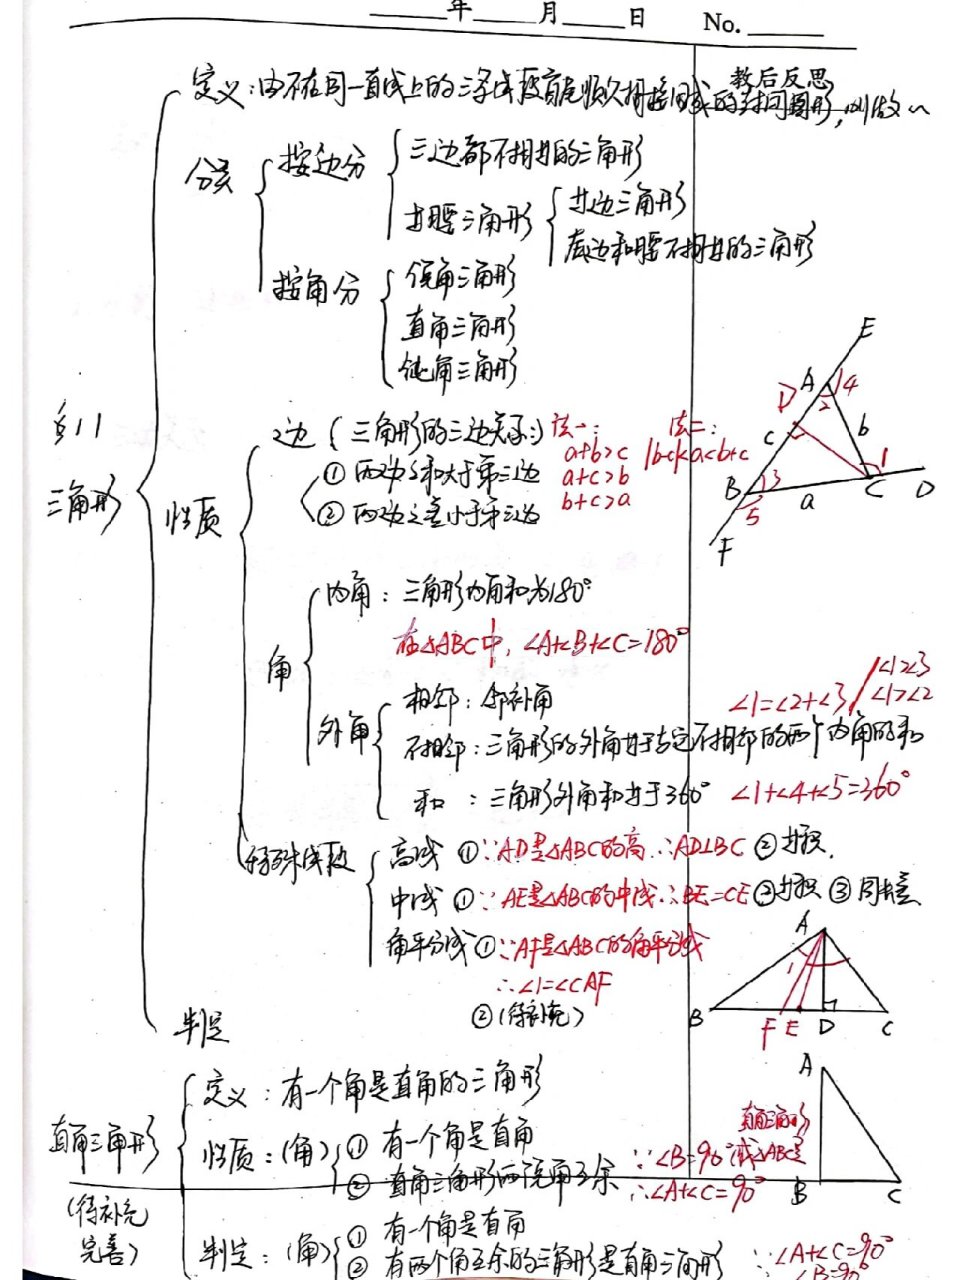 年 月 日 No.
教后反思
定义:由不在同一直线上的三条线段首尾顺次相接组成的封闭图形,叫做~
分类
按边分
三边都不相等的三角形
等腰三角形
等边三角形
底边和腰不相等的三角形
按角分
锐角三角形
直角三角形
钝角三角形
三角形
性质
边(三角形的三边关系)
法一:
a+b>c
a+c>b
b+c>a
法二:
|b-c|<a<b+c
① 两边之和大于第三边
② 两边之差小于第三边
E
A
4
D
2
c
b
1
B
3
a
C
D
5
F
角
内角:三角形内角和为180°
在△ABC中,∠A+∠B+∠C=180°
外角
相邻:邻补角
∠1=∠2+∠3
∠1>∠3
∠1>∠2
不相邻:三角形的外角等于与它不相邻的两个内角的和
和:三角形外角和等于360° ∠1+∠4+∠5=360°
特殊线段
高线 ①∵AD是△ABC的高∴AD⊥BC ②等积.
中线 ①∵AE是△ABC的中线∴BE=CE ②等积 ③周长差
角平分线①∵AF是△ABC的角平分线
∴∠1=∠CAF
②(待补充)
A
1
B
F E D C
判定
直角三角形
(待补充
完善)
定义:有一个角是直角的三角形
性质:(角)
① 有一个角是直角
② 直角三角形两锐角互余
∵∠B=90°或△ABC是
直角三角形
∴∠A+∠C=90°
A
B
C
判定:(角)
① 有一个角是直角
② 有两个角互余的三角形是直角三角形
∵∠A+∠C=90°
∠B=90°